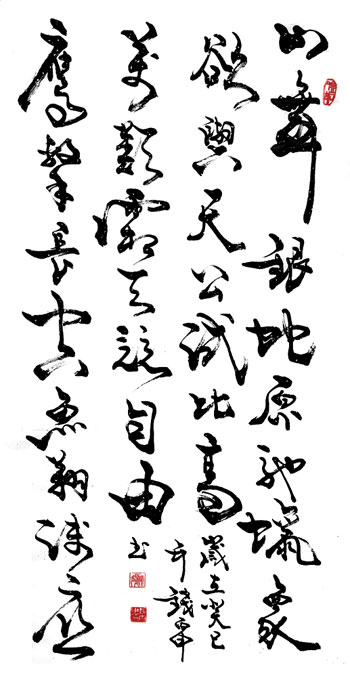 山舞銀蛇原馳蠟象
欲與天公試比高
歲在癸巳
萬類霜天競自由
書
鷹擊長空魚翔淺底